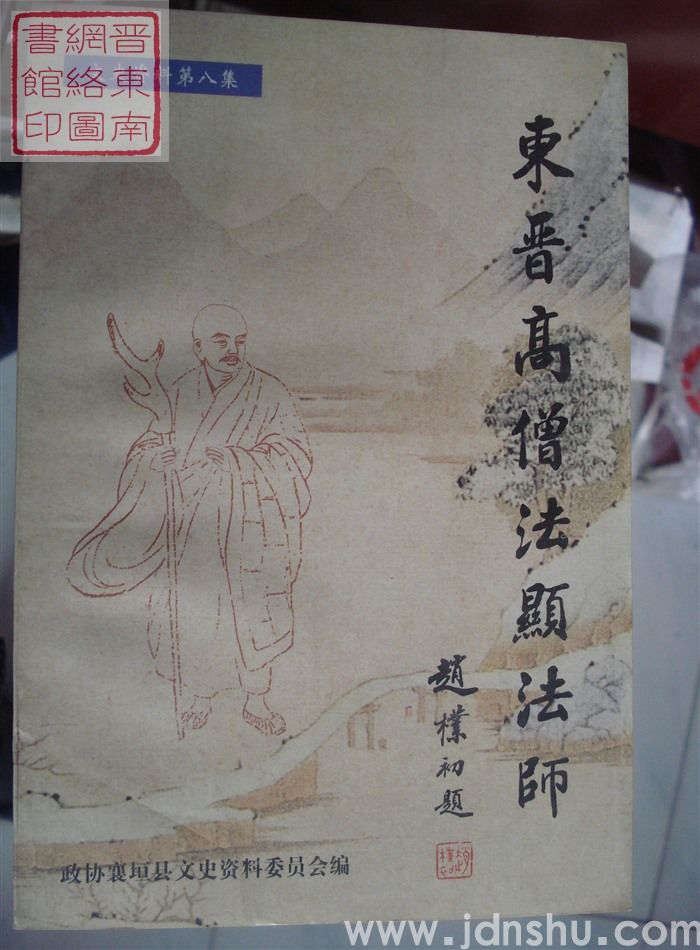 晋東南
網絡圖
書館印
料第八集
東晋高僧法顯法師
趙樸初題
政协襄垣县文史资料委员会编
www.jdnshu.com